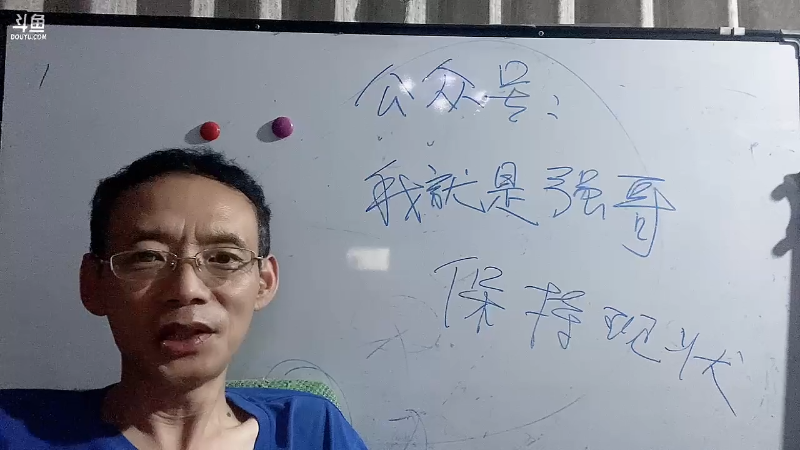 斗鱼
DOUYU.COM
公众号:
我就是强哥
保持现状